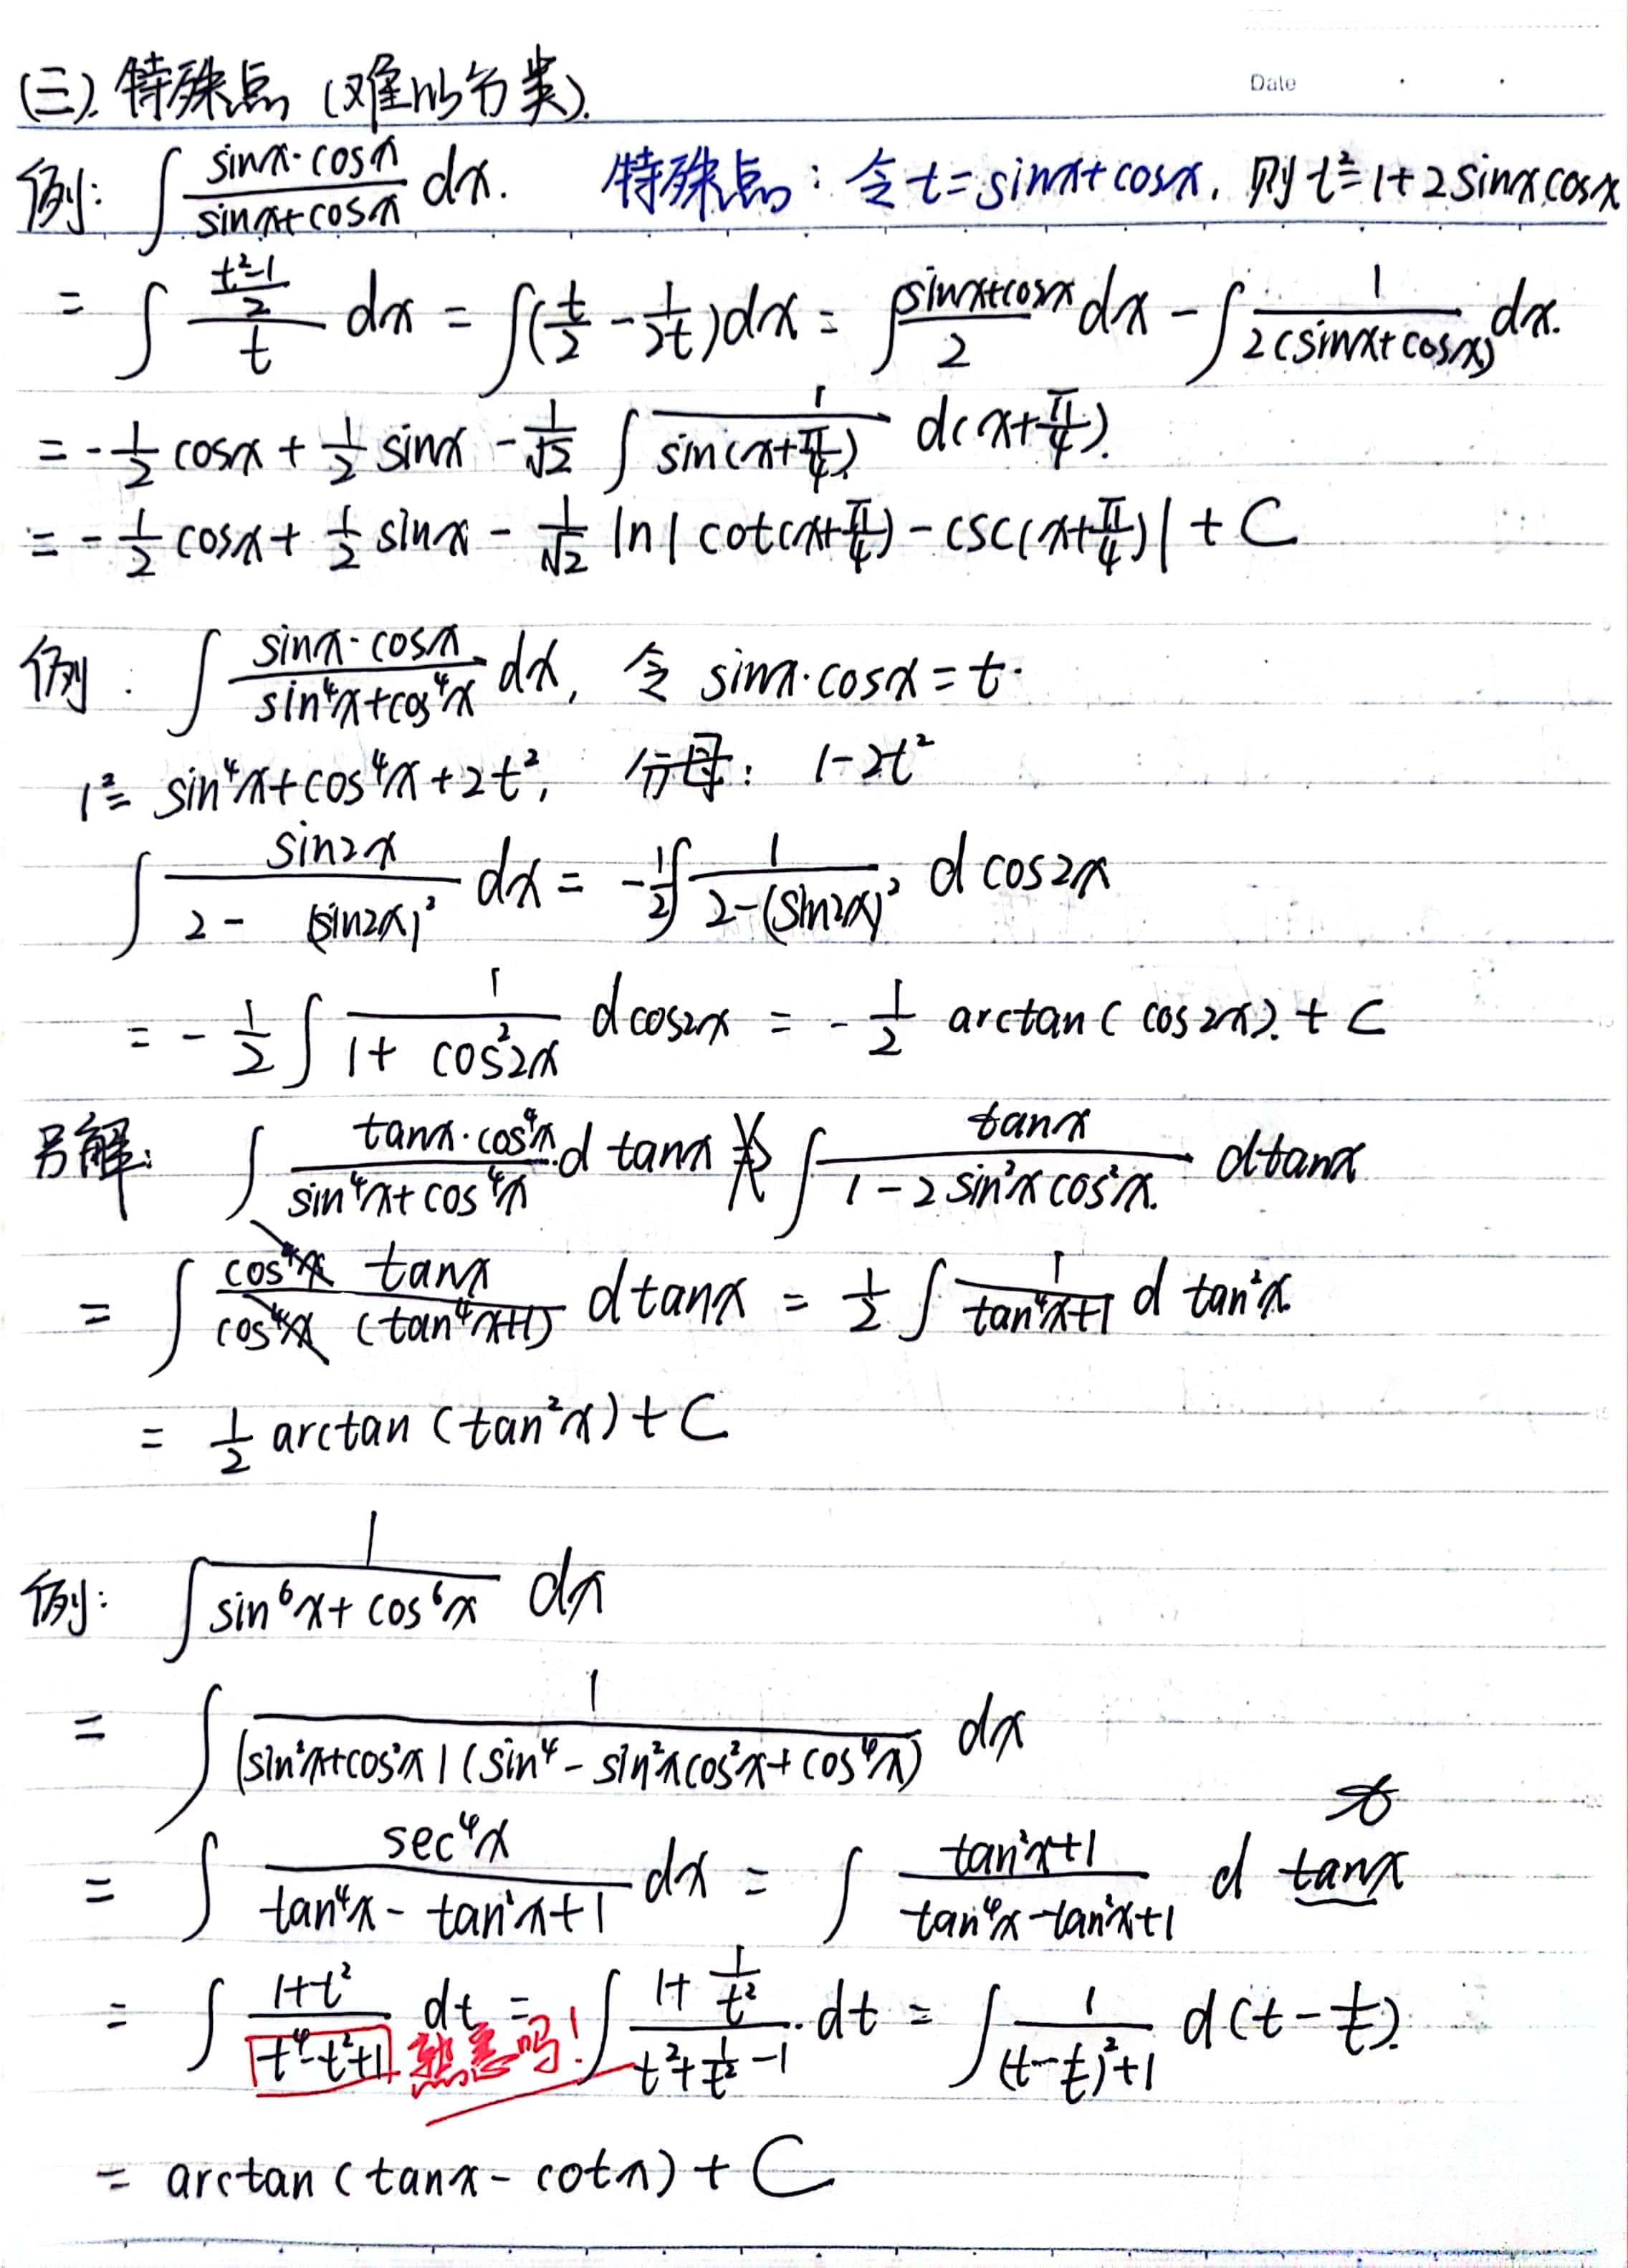 Date
(三). 特殊点 (难以分类).
例: ∫ (sinx·cosx)/(sinx+cosx) dx. 特殊点: 令 t=sinx+cosx, 则 t²=1+2sinxcosx
= ∫ ((t²-1)/2)/t dx = ∫(t/2 - 1/2t)dx = ∫(sinx+cosx)/2 dx - ∫ 1/(2(sinx+cosx)) dx.
= -1/2 cosx + 1/2 sinx - 1/√2 ∫ 1/sin(x+π/4) d(x+π/4).
= -1/2 cosx + 1/2 sinx - 1/√2 ln|cot(x+π/4) - csc(x+π/4)| + C
例: ∫ (sinx·cosx)/(sin⁴x+cos⁴x) dx, 令 sinx·cosx=t.
1²= sin⁴x+cos⁴x+2t², 分母: 1-2t²
∫ sin2x/(2-(sin2x)²) dx = -1/2∫ 1/(2-(sin2x)²) d cos2x
= -1/2 ∫ 1/(1+cos²2x) d cos2x = -1/2 arctan(cos2x). + C
另解: ∫ (tanx·cos⁴x)/(sin⁴x+cos⁴x) d tanx ∫ tanx/(1-2sin²xcos²x.) dtanx
= ∫ (cos⁴x tanx)/(cos⁴x (tan⁴x+1)) dtanx = 1/2 ∫ 1/(tan⁴x+1) d tan²x.
= 1/2 arctan(tan²x)+C
例: ∫ 1/(sin⁶x+cos⁶x) dx
= ∫ 1/((sin²x+cos²x)(sin⁴-sin²xcos²x+cos⁴x)) dx
= ∫ sec⁴x/(tan⁴x-tan²x+1) dx = ∫ (tan²x+1)/(tan⁴x-tan²x+1) d tanx
= ∫ (1+t²)/(t⁴-t²+1) dt = ∫ (1+1/t²)/(t²+1/t²-1)·dt = ∫ 1/((t-1/t)²+1) d(t-1/t).
熟悉吗!
= arctan(tanx-cotx)+C